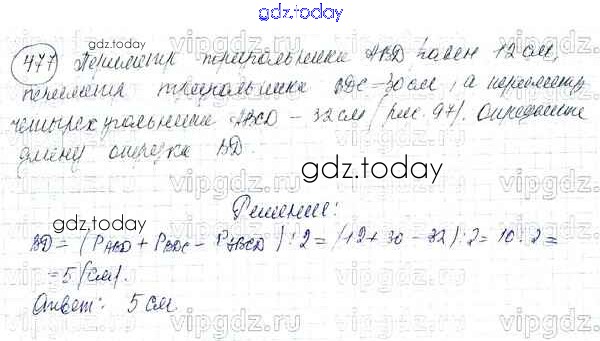 gdz.today
477 Периметр треугольника ABD равен 12 см,
периметр треугольника BDC – 30 см, а периметр
четырехугольника ABCD – 32 см (рис. 97). Определите
длину отрезка BD.
gdz.today
gdz.today
Решение:
BD = (P ABD + P BDC – P ABCD) : 2 = (12 + 30 – 32) : 2 = 10 : 2 =
= 5 (см).
Ответ: 5 см
vipgdz.ru